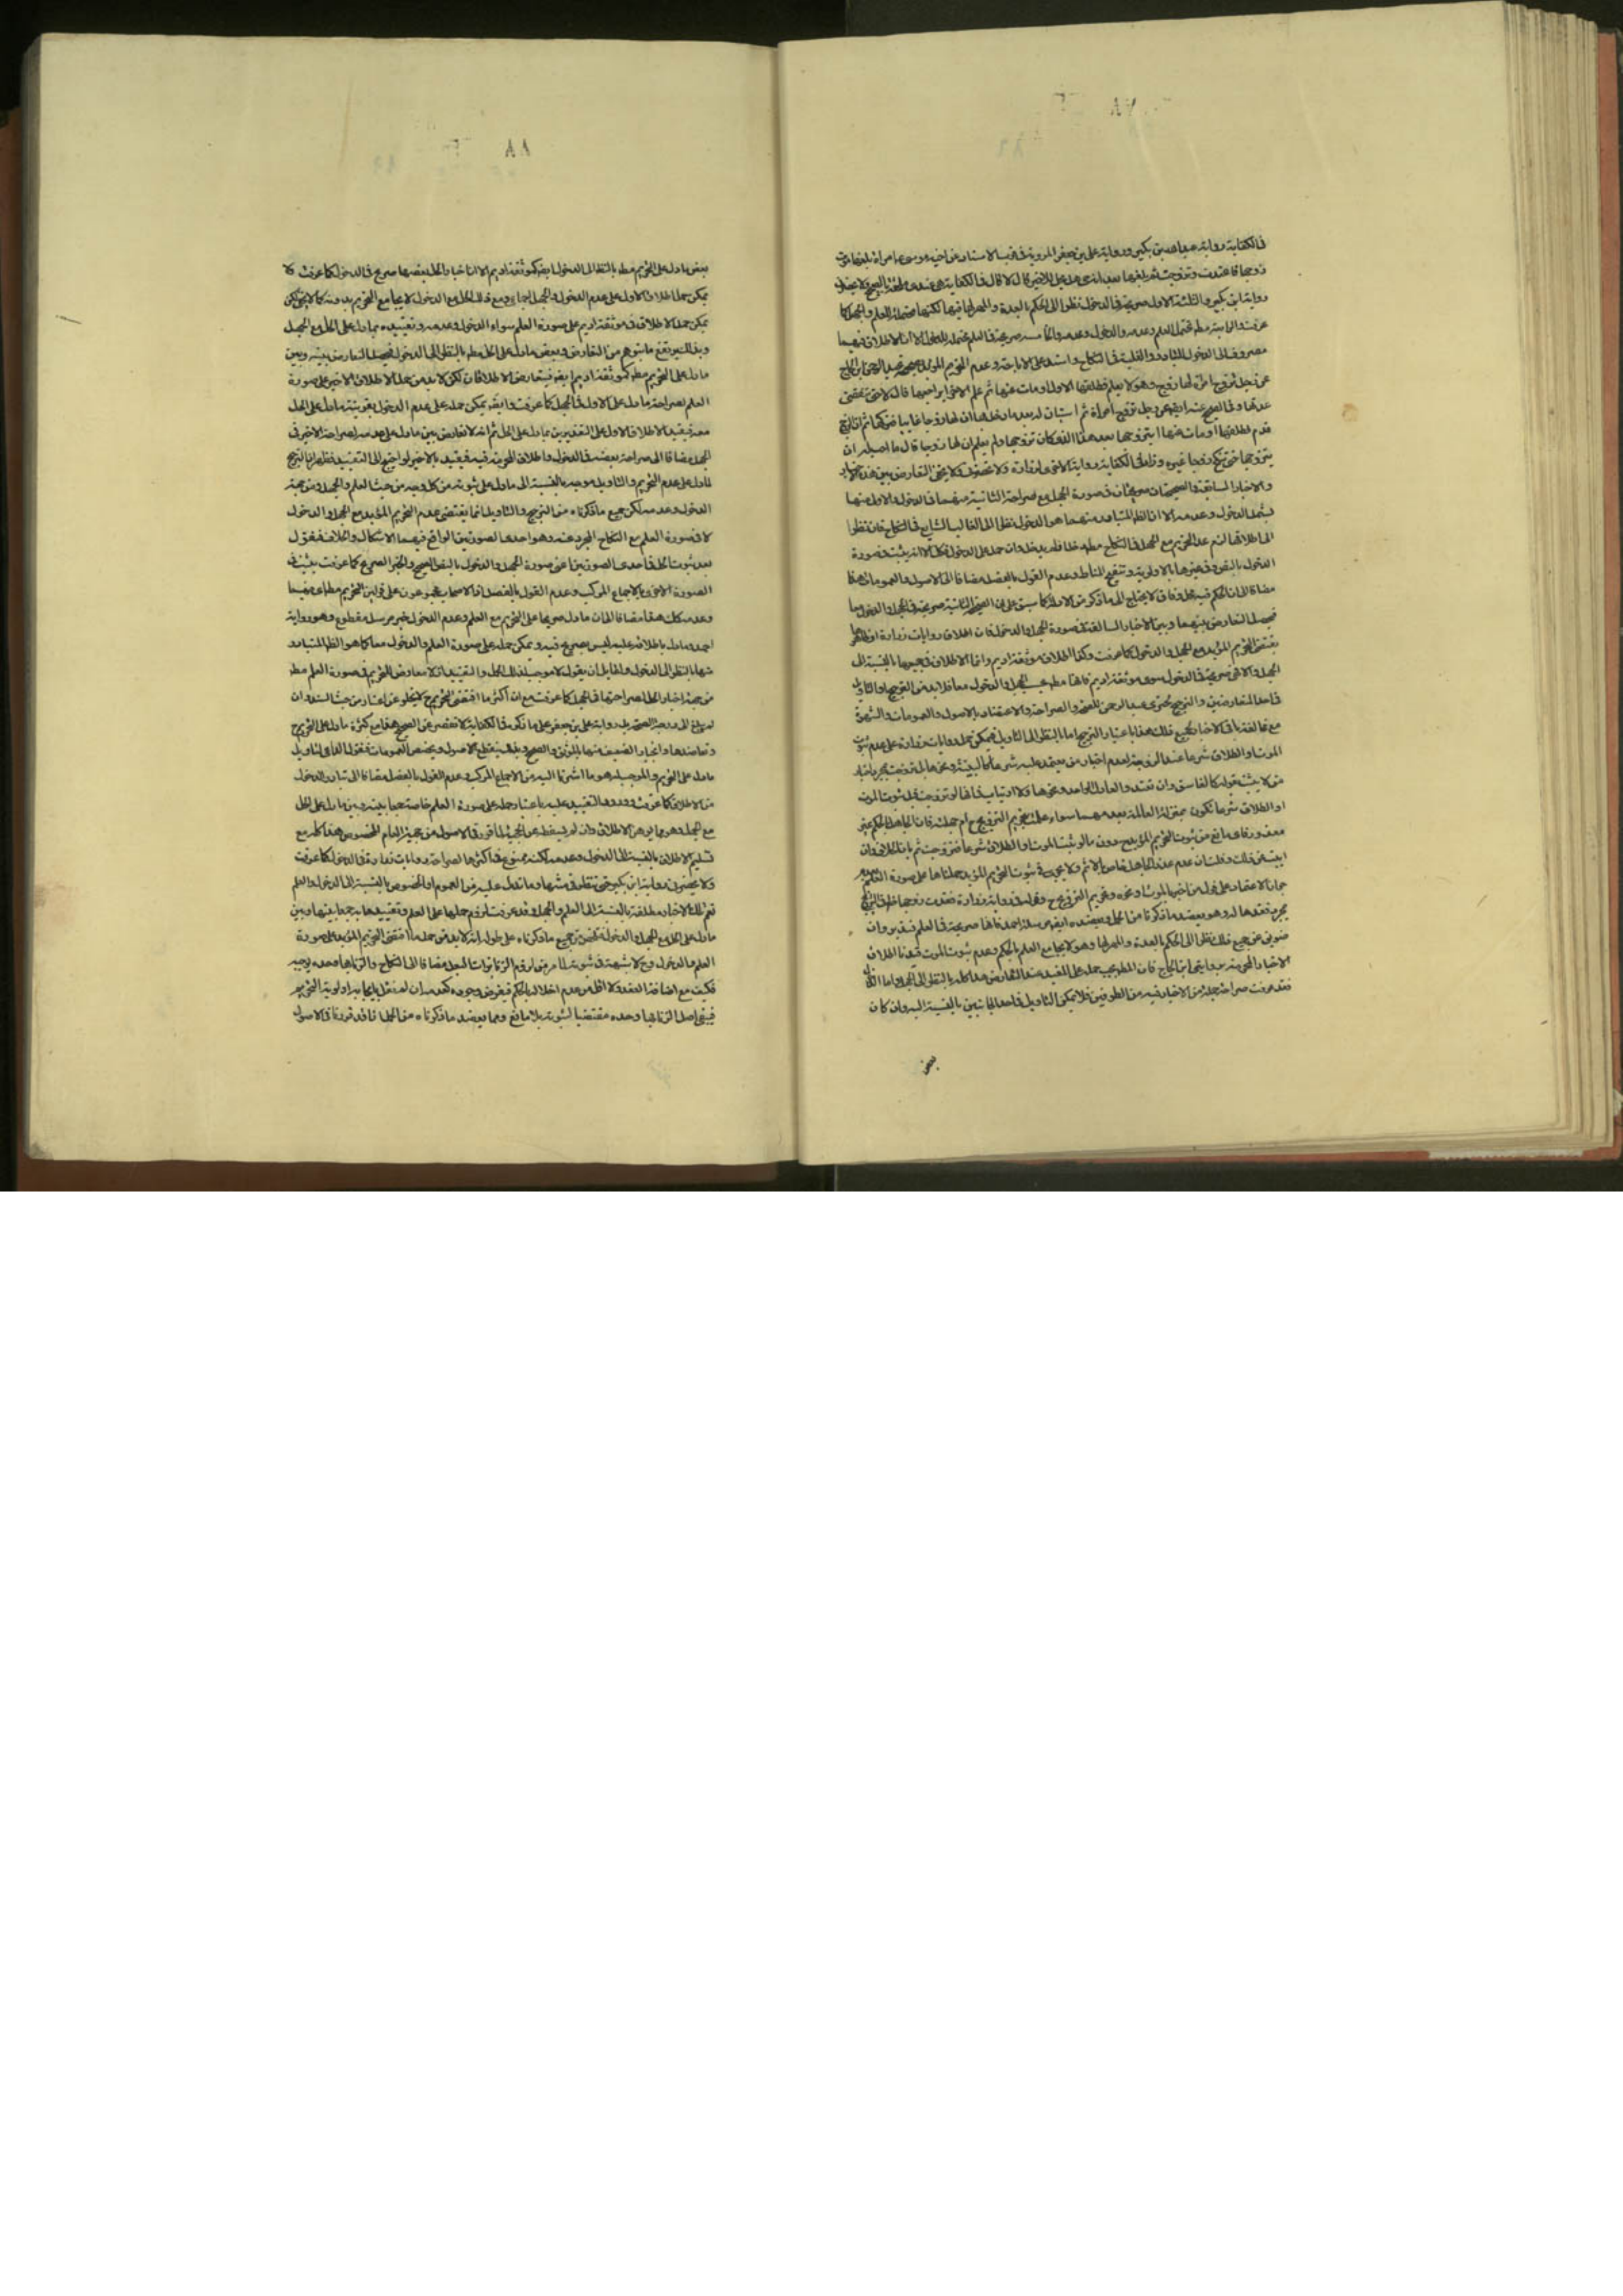 في الكفاية رواية عبد الله بن بكير ورواية علي بن جعفر المروية في قرب الاسناد عن اخيه موسى امراة بلغها موت
زوجها فاعتدت وتزوجت ثم بلغها بعد
رواية ابن بكير والثلثة الاول صريحة في الدخول نظرا الى الحكم بالعدة والمهر لها فيها لكنها محتملة للعلم والجهل كما
عرفت والرابعة مطلقة تحتمل العلم وعدمه والدخول وعدمه الا ان الاطلاق فيهما
مصروف الى الدخول للتبادر والغلبة في النكاح واستدل على الاباحة وعدم التحريم المؤبد بصحيحة عبد الرحمن بن الحجاج
عن رجل تزوج امراة لها زوج وهو لا يعلم فطلقها الاول او مات عنها ثم علم الاخير ايراجعها قال لا حتى تنقضي
عدتها وفي الصحيح عنه ايضا عن رجل تزوج امراة ثم استبان له بعد ما دخل بها ان لها زوجا غايبا فتركها ثم ان الزوج
قدم فطلقها او مات عنها ايتزوجها بعد هذا الذي كان تزوجها ولم يعلم ان لها زوجا قال ما احب له ان
يتزوجها حتى تنكح زوجا غيره وزاد في الكفاية رواية اخرى لزرارة ولا يخفى التعارض بين هذه الاخبار
والاخبار السابقة والصحيحتان صريحتان في صورة الجهل مع صراحة الثانية منهما في الدخول والاولى منهما
يشمل الدخول وعدمه الا ان الظ المتبادر منهما هو الدخول نظرا الى الغالب الشايع في النكاح فان نظرا
الى اطلاقها لزم عدم التحريم مع الجهل في النكاح مطلقا دخل او لم يدخل وان حمل على الدخول فكك الا انه يثبت في صورة
الدخول بالنص وفي غيرها بالاولوية وتنقيح المناط وعدم القول بالفصل مضافا الى الاصول والعمومات هذا
مضافا الى ان الحكم فيه محل وفاق لا يحتاج الى ما ذكر من الادلة كما سبق على ان الصحيحة الثانية صريحة في الجهل والدخول معا
فيحصل التعارض بينهما وبين الاخبار السالفة في صورة الجهل والدخول فان اطلاق روايات زرارة او ظاهرها
يقتضي التحريم المؤبد مع الجهل والدخول كما عرفت وكذا اطلاق موثقة اديم وانما الاطلاق في جميعها بالنسبة الى
الجهل والا فهي صريحة في الدخول سوى موثقة اديم فانها مطلقة بحسب الجهل والدخول معا فلا بد من الترجيح او التاويل
في احد المتعارضين والترجيح لخبري عبد الرحمن للصحة والصراحة والاعتضاد بالاصول والعمومات والشهرة
مع مخالفة باقي الاخبار لجميع ذلك هذا باعتبار الترجيح اما بالنظر الى التاويل فيمكن حمل روايات زرارة على عدم ثبوت
الموت والطلاق شرعا عند الزوجة لعدم اخبار من يعتمد عليه شرعا كالبينة ونحوها بل تزوجت بمجرد اخبار
من لا يثبت بقوله كالفاسق وان تعدد والعادل الواحد ونحوها ولا ارتياب في انها لو تزوجت قبل ثبوت الموت
او الطلاق شرعا تكون بمنزلة العالمة بعدمهما سواء علمت بتحريم التزويج ح ام جهلت فان الجاهل بالحكم غير
معذور فلا مانع من ثبوت التحريم المؤبد ح دون ما لو ثبت الموت او الطلاق شرعا فتزوجت ثم بان الخلاف وان
ابيت عن ذلك
جهلنا الاعتقاد على قول من اخبرها بالموت ونحوه وتحريم التزويج ح
بمجرد فقدها له وهو يعضد ما ذكرنا من الحمل ويعضده ايضا مرسلة احمد فانها صريحة في العلم فتدبر وان
ضويق عن جميع ذلك نظرا الى الحكم بالعدة والمهر لها وهو لا يجامع العلم بالحكم وعدم ثبوت الموت قيدنا اطلاق
الاخبار المحرمة بروايتي ابن الحجاج فان المطلق يجب حمله على المقيد عند التعارض هذا كله بالنظر الى الجهل واما الدخول
فقد عرفت صراحة جملة من الاخبار فيه من الطرفين فلا يمكن التاويل في احد الجانبين بالنسبة اليه وان كان
بعض
بعض ما دل على التحريم مطلقا بالنظر الى الدخول ايضا كموثقة اديم الا ان اخبار الحل بعضها صريح في الدخول كما عرفت ولا
يمكن حمل اطلاق الاول على عدم الدخول والجهل اجماعا ومع ذلك الحل مع الدخول لا يجامع التحريم بدونه كما لا يخفى لكن
يمكن حمل الاطلاق في موثقة اديم على صورة العلم سواء الدخول وعدمه وتقييده بما دل على الحل مع الجهل
وبذلك يرتفع ما يتوهم من التعارض وبعض ما دل على الحل مطلقا بالنظر الى الدخول فيحصل التعارض بينه وبين
ما دل على التحريم مطلقا كموثقة اديم ايضا فيتعارض الاطلاقان لكن لا بد من حمل الاطلاق الاخير على صورة
العلم لصراحة ما دل على الاول في الجهل كما عرفت وايضا يمكن حمله على عدم الدخول بقرينة ما دل على الحل
معه فيقيد الاطلاق الاول على التقديرين بما دل على الحل ثم انه لا تعارض بين ما دل على عدمه لصراحة الاخير في
الجهل مضافا الى صراحة بعضه في الدخول واطلاق المحرمة فيه فيقيد بالاخير لو احتيج الى التقييد فظهر ان الترجيح
لما دل على عدم التحريم والتاويل موجه بالنسبة الى ما دل على ثبوته من كل وجه من حيث العلم والجهل ومن جهة
الدخول وعدمه لكن جميع ما ذكرناه من الترجيح والتاويل انما يقتضي عدم التحريم المؤبد مع الجهل والدخول
لا في صورة العلم مع النكاح المجرد عنه وهو احدى الصورتين الواقع فيهما الاشكال والخلاف فنقول
بعد ثبوت الحل في احدى الصورتين اعني صورة الجهل والدخول بالنص الصحيح والخبر الصريح كما عرفت يثبت في
الصورة الاخرى بالاجماع المركب وعدم القول بالفصل اذ الاصحاب مجموعون على قولين التحريم مطلقا فيهما
وعدمه كك هذا مضافا الى ان ما دل صريحا على التحريم مع العلم وعدم الدخول خبر مرسل مقطوع وهو رواية
احمد وما دل باطلاقه عليه ليس بصريح فيه ويمكن حمله على صورة العلم والدخول معا كما هو الظ المتبادر
منها بالنظر الى الدخول ولقايل ان يقول لا موجب لذلك الحمل والتقييد اذ لا معارض للتحريم في صورة العلم مطلقا
من جهة اخبار الحل لصراحتها في الجهل كما عرفت مع ان اكثر ما اقتضى التحريم ح لا يخلو عن اعتبار من حيث السند وان
لم يبلغ الى درجة الصحة بل رواية علي بن جعفر على ما ذكره في الكفاية لا تقصر عن الصحيح هذا مع كثرة ما دل على التحريم
وتعاضدها وانجبار الضعيف منها بالموثق والصحيح وبذلك ينقطع الاصول ويخصص العمومات فنقول الداعي لتاويل
ما دل على التحريم والموجب له هو ما اشرنا اليه من الاجماع المركب وعدم القول بالفصل مضافا الى تبادر الدخول
من الاطلاق كما عرفت وورود التقييد عليه باعتبار حمله على صورة العلم خاصة جمعا بينه وبين ما دل على الحل
مع الجهل وهو مما يوهن الاطلاق وان لم يسقطه عن الحجية لما قرر في الاصول من حجية العام المخصوص هذا كله مع
تسليم الاطلاق بالنسبة الى الدخول وعدمه لكنه ممنوع في اكثرها لصراحة روايات زرارة في الدخول كما عرفت
ولا يحضرني رواية ابن بكير حتى ننظر في متنها وما تدل عليه من العموم او الخصوص بالنسبة الى الدخول والعلم
نعم تلك الاخبار مطلقة بالنسبة الى العلم والجهل وقد عرفت لزوم حملها على العلم وتقييدها به جمعا بينها وبين
ما دل على الحل مع الجهل والدخول فتلخص من جميع ما ذكرناه على طوله انه لا بد من حمل ما اقتضى التحريم المؤبد على صورة
العلم والدخول وح لا شبهة في ثبوته لما مر من لزوم الزنا بذات البعل مضافا الى النكاح والزنا بها وحده يوجبه
فكيف مع اضافة العقد ولا اقل من عدم اخلاله بالحكم فيفرض وجوده كعدمه ان لم نقل بايجابه اولوية التحريم
فيبقى اصل الزنا بها وحده مقتضيا لثبوته بلا مانع ومما يعضد ما ذكرناه من الحمل انا قد قررنا في الاصول